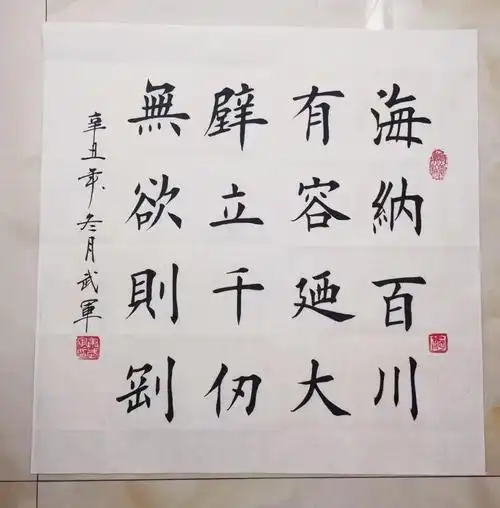 海納百川
有容廼大
壁立千仞
無欲則剛
辛丑年冬月武軍